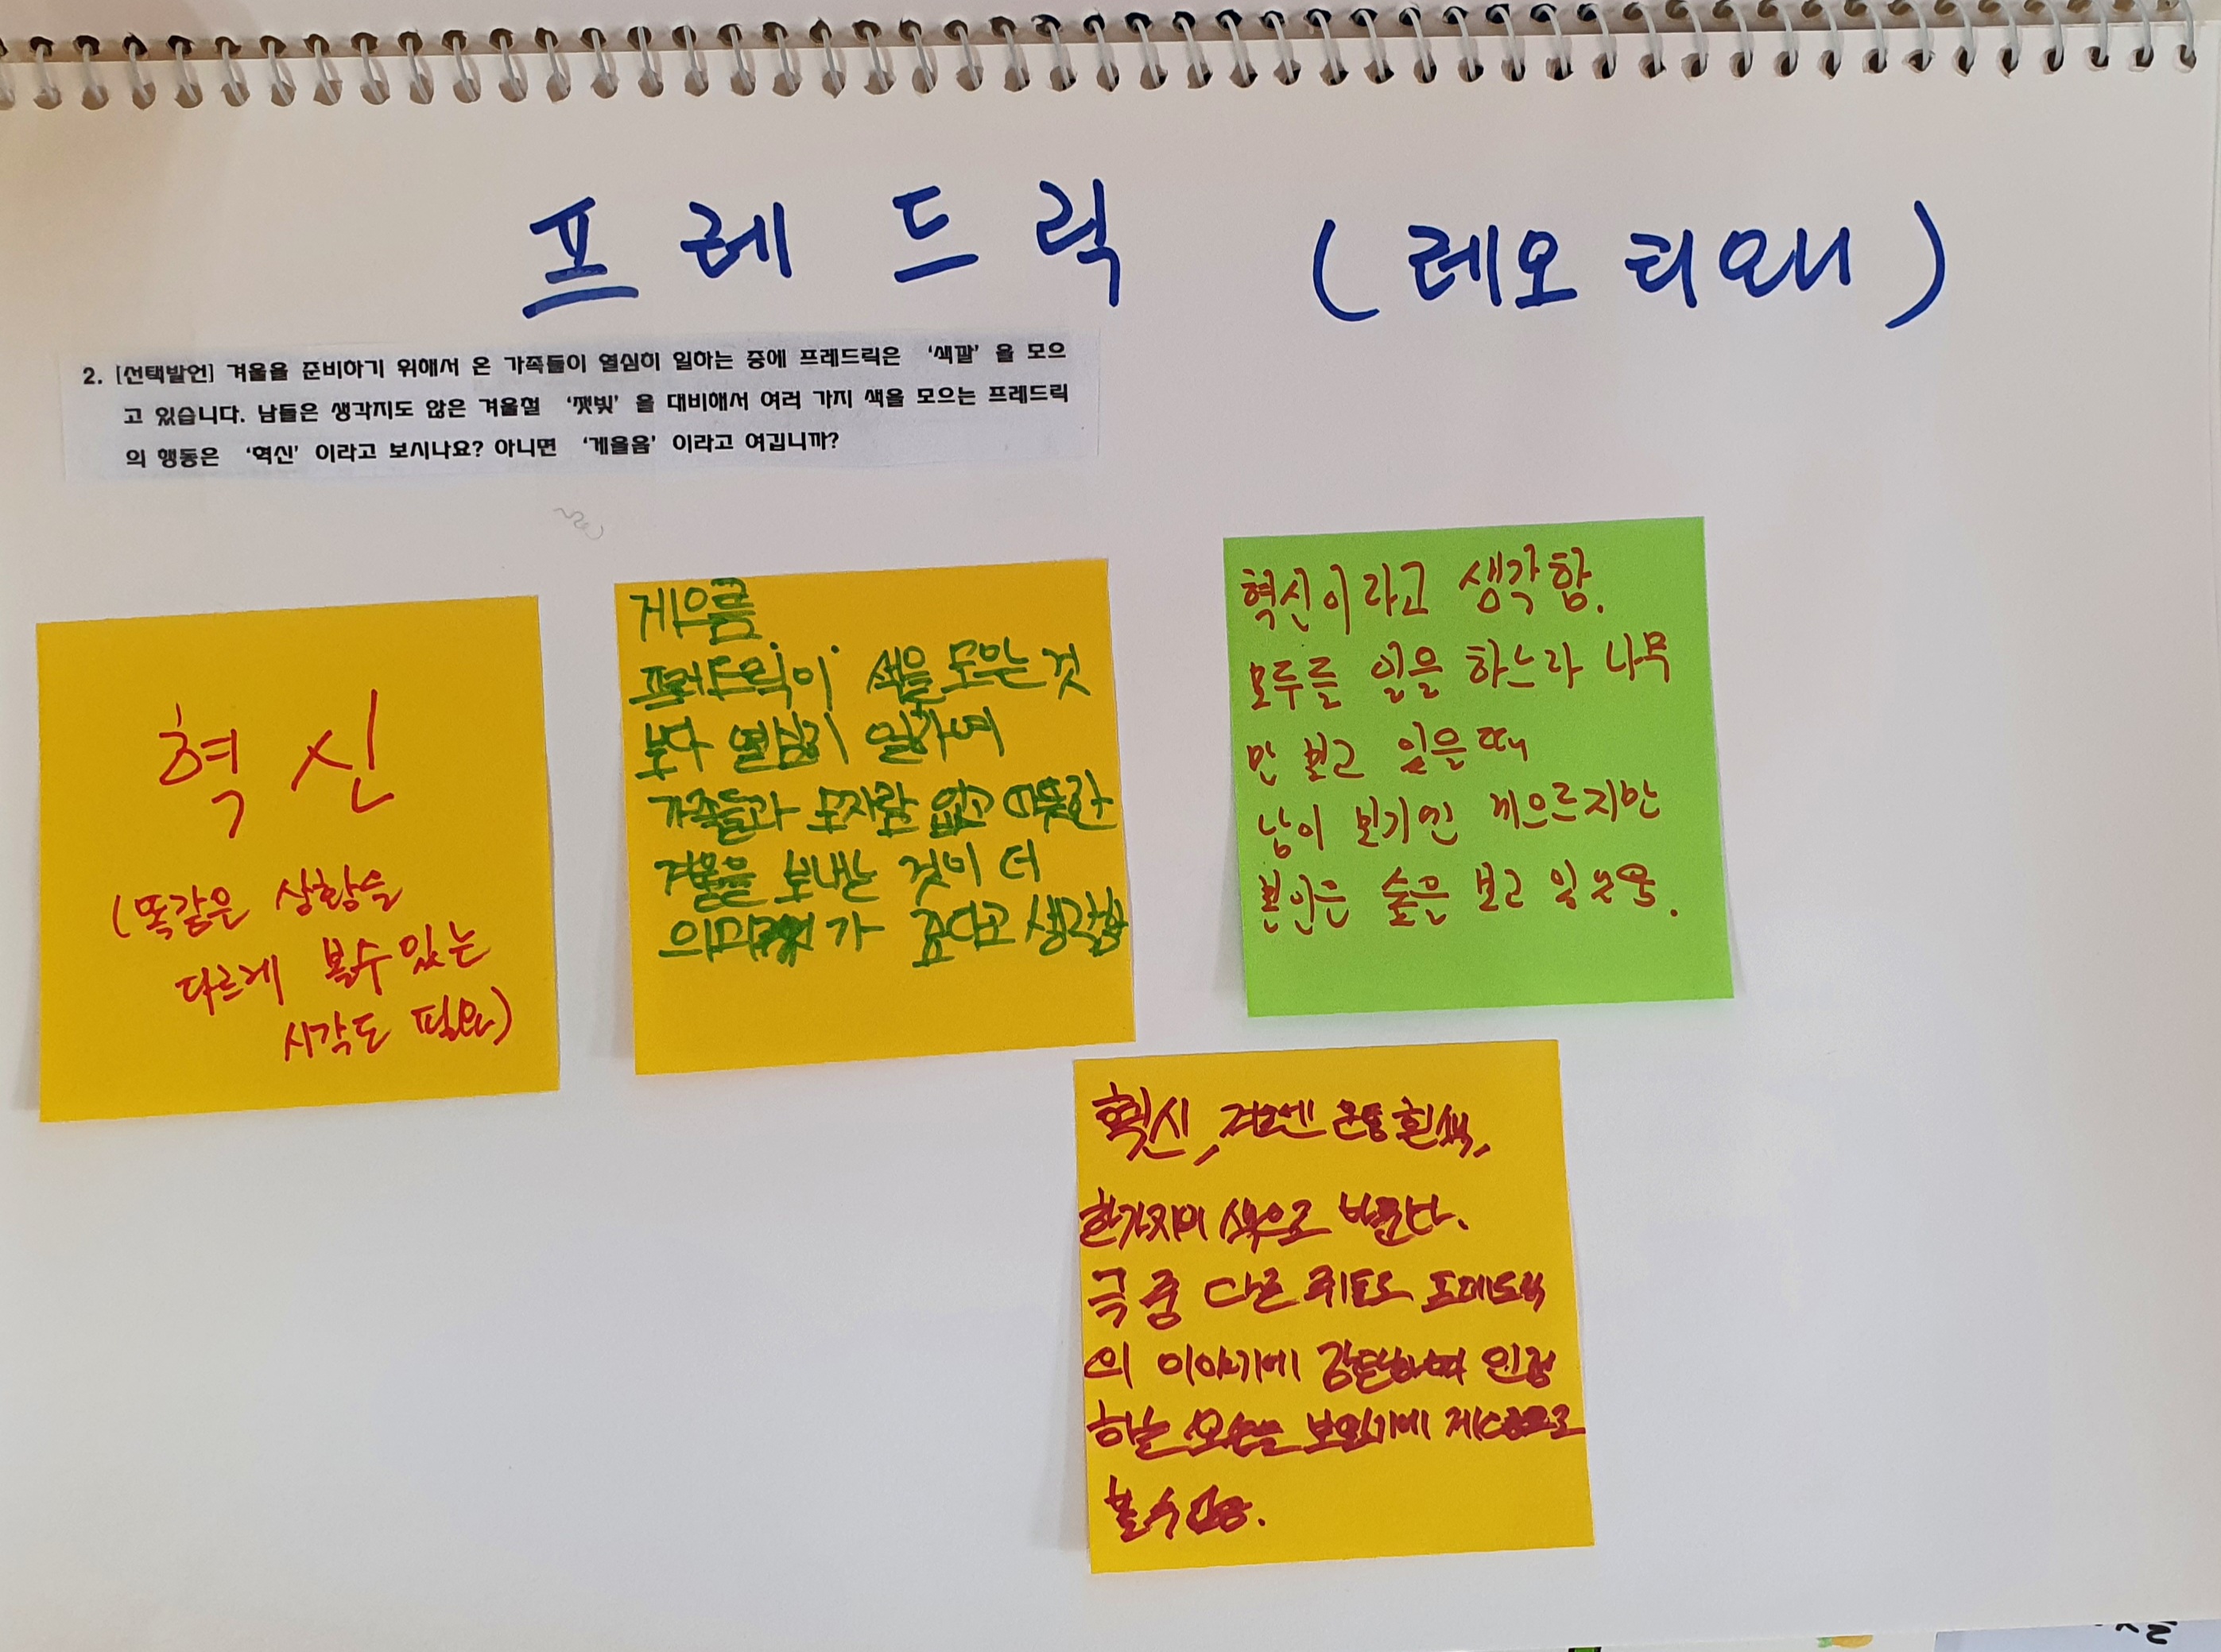 프레드릭 (레오 리오니)
2. [선택발언] 겨울을 준비하기 위해서 온 가족들이 열심히 일하는 중에 프레드릭은 '색깔' 을 모으
고 있습니다. 남들은 생각지도 않은 겨울철 '잿빛' 을 대비해서 여러 가지 색을 모으는 프레드릭
의 행동은 '혁신' 이라고 보시나요? 아니면 '게을음' 이라고 여깁니까?
혁신
(똑같은 상황을
다르게 볼수있는
시각도 필요)
게으름
프레드릭이 색을 모으는 것
보다 열심히 일하며
가족들과 모자람 없고 따뜻한
겨울을 보내는 것이 더
의미가 준다고 생각함
혁신이라고 생각함.
모두들 일을 하느라 나무
만 보고 있을때
남이 보기엔 게으르지만
본인은 숲을 보고 있었음.
혁신, 겨울엔 온통 흰색,
한가지의 색으로 바뀐다.
극 중 다른 쥐들도 프레드릭
의 이야기에 감탄하며 인정
하는 모습을 보였기에
볼수있음.